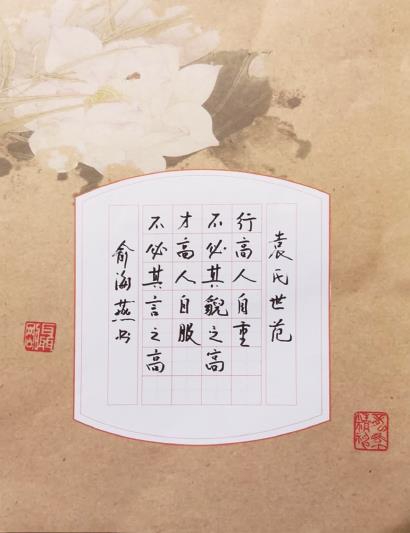 袁氏世范
行高人自重
不必其貌之高
才高人自服
不必其言之高
俞海燕书